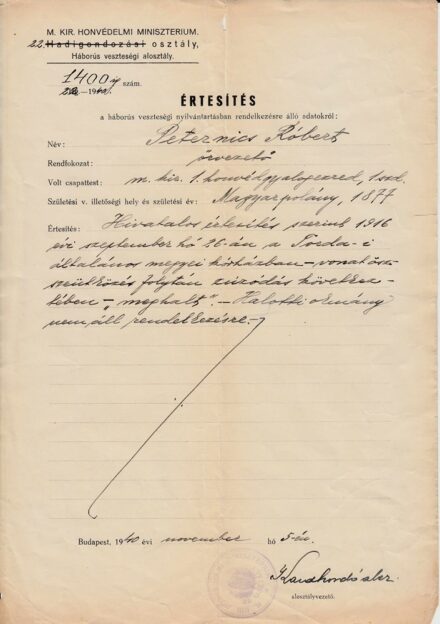 M. KIR. HONVÉDELMI MINISZTERIUM.
22. Hadigondozási osztály,
Háborús veszteségi alosztály.
1400 szám.
ÉRTESÍTÉS
a háborús veszteségi nyilvántartásban rendelkezésre álló adatokról:
Név: Peternics Róbert
Rendfokozat: őrvezető
Volt csapattest: m. kir. 1. honvédgyalogezred, 1. szd.
Születési v. illetőségi hely és születési év: Magyarpolány, 1877
Értesítés: Hivatalos értesítés szerint 1916
évi szeptember hó 26-án a Torda-i
általános megyei kórházban – vonatösz-
szeütközés folytán zúzódás következ-
tében – "meghalt". – Halotti okmány
nem áll rendelkezésre. –
Budapest, 1940 évi november hó 5-én.
alosztályvezető.